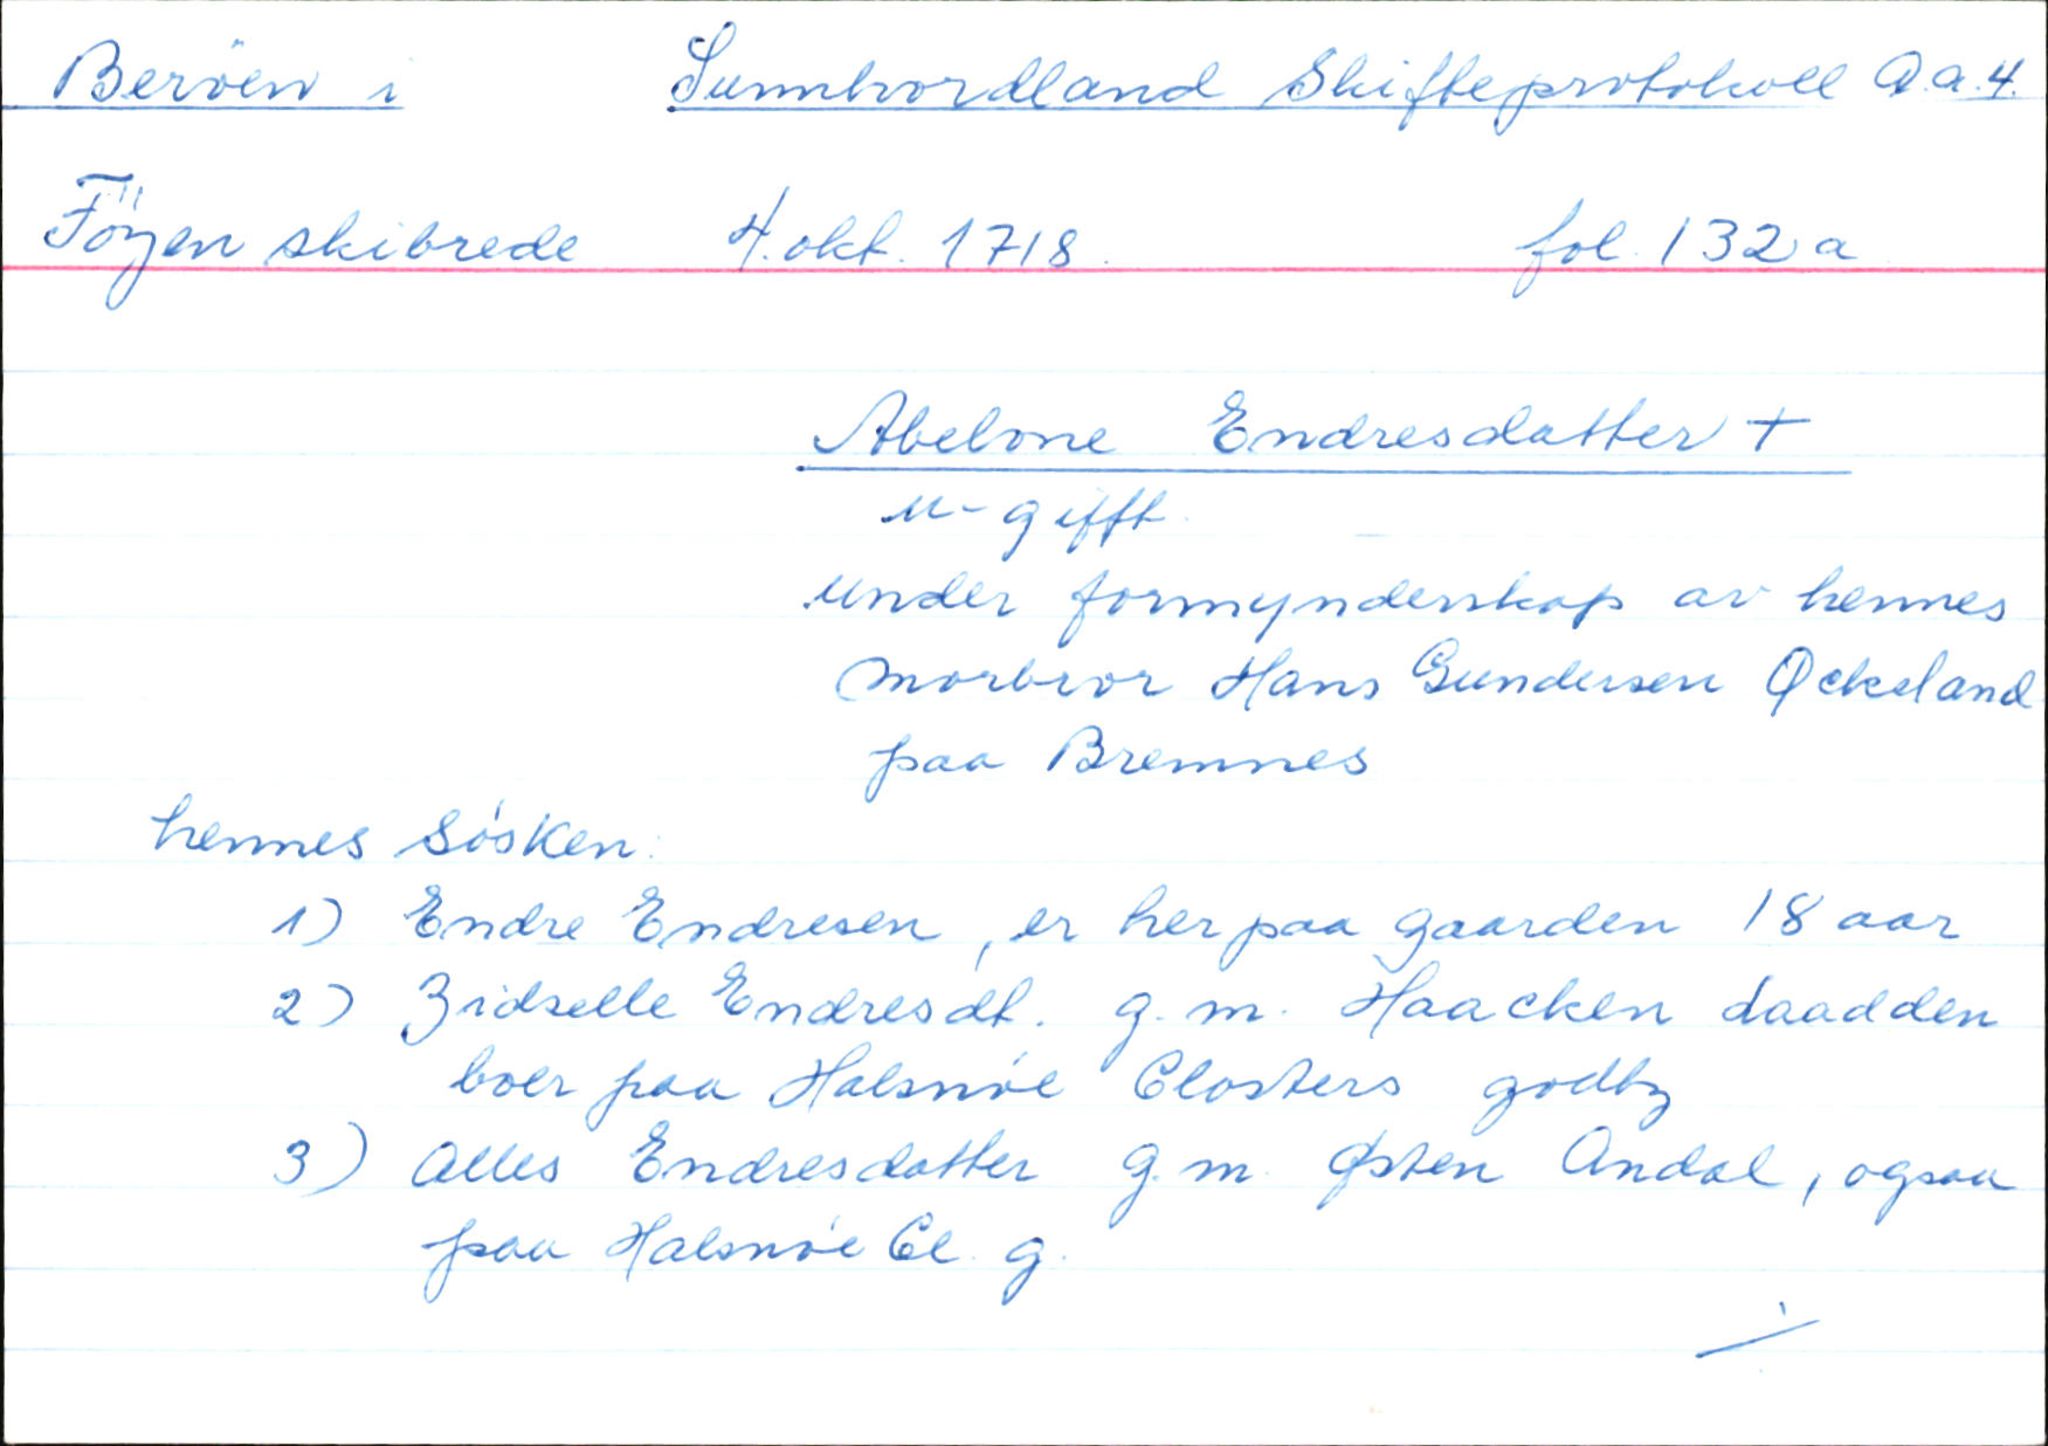 Beröen i Sunnhordland Skifteprotokoll A.a.4.
Föyen skibrede 4. okt. 1718. fol. 132a
Abelone Endresdatter +
u-gifft.
under formynderskap av hennes
morbror Hans Gundersen Øckeland
paa Bremnes
hennes søsken:
1) Endre Endresen, er her paa gaarden 18 aar
2) Zidselle Endresdt. g.m. Haacken daadden
boer paa Halsnøe Closters godtz
3) Alles Endresdatter g.m. Østen Andal, ogsaa
paa Halsnøe Cl. g.